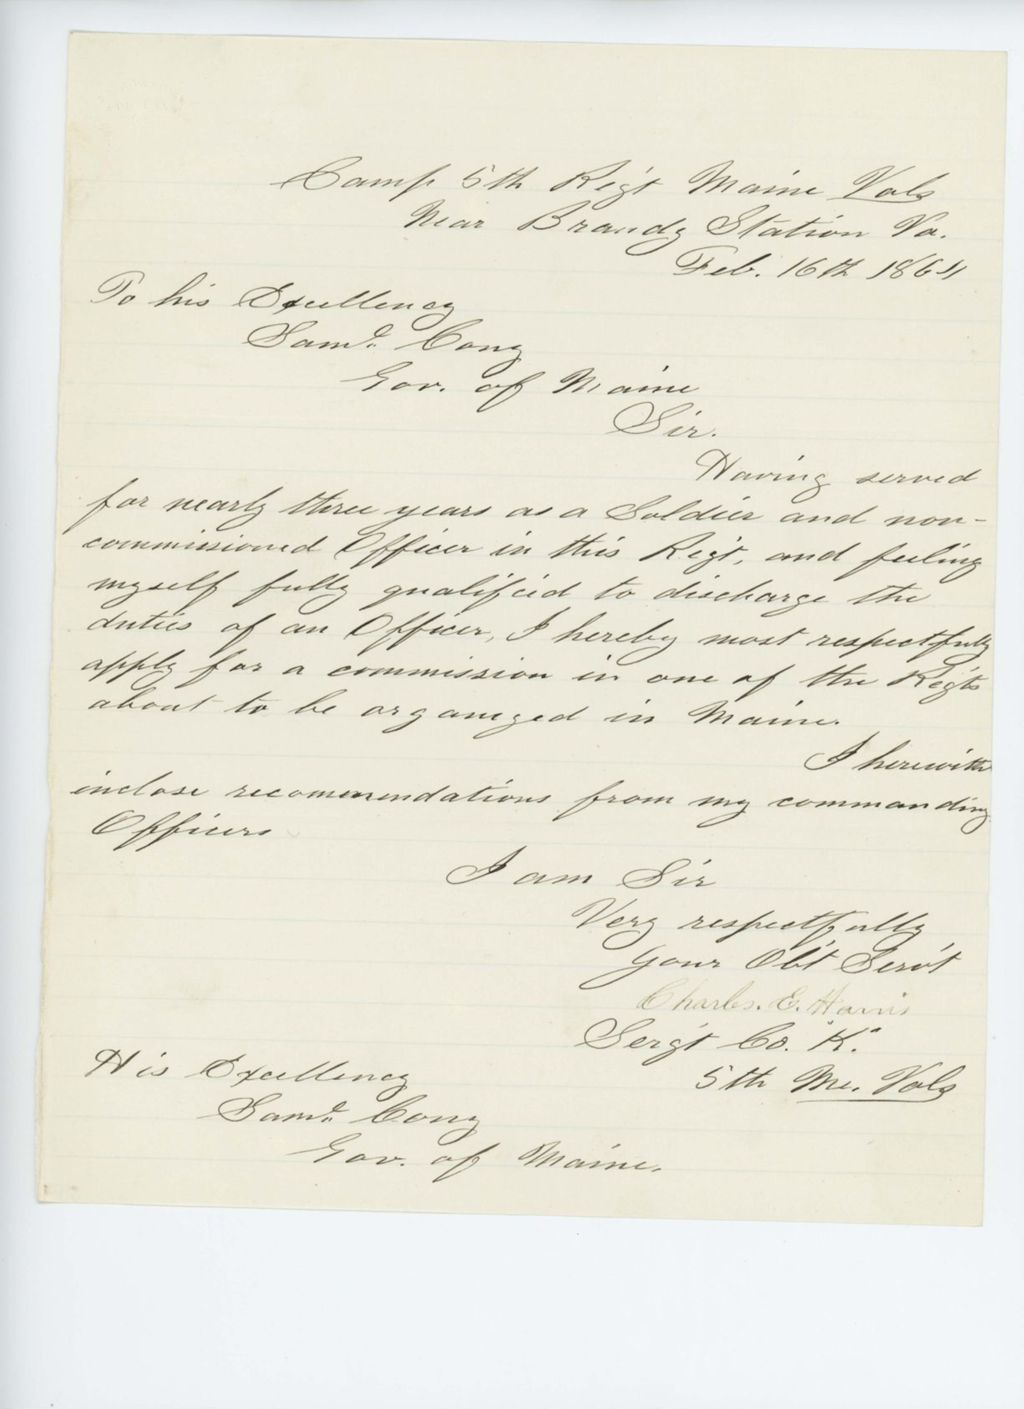 Camp 5th Reg't Maine Vols
Near Brandy Station Va.
Feb. 16th 1864
To his Excellency
Saml. Cony
Gov. of Maine
Sir.
Having served
for nearly three years as a Soldier and non-
commissioned Officer in this Regt, and feeling
myself fully qualified to discharge the
duties of an Officer, I hereby most respectfully
apply for a commission in one of the Reg'ts
about to be organized in Maine.
I herewith
inclose recommendations from my commanding
Officers
I am Sir
Very respectfully
Your Ob't Serv't
Charles. E. Harris
Serg't Co. "K."
5th Me. Vols
His Excellency
Saml. Cony
Gov. of Maine.